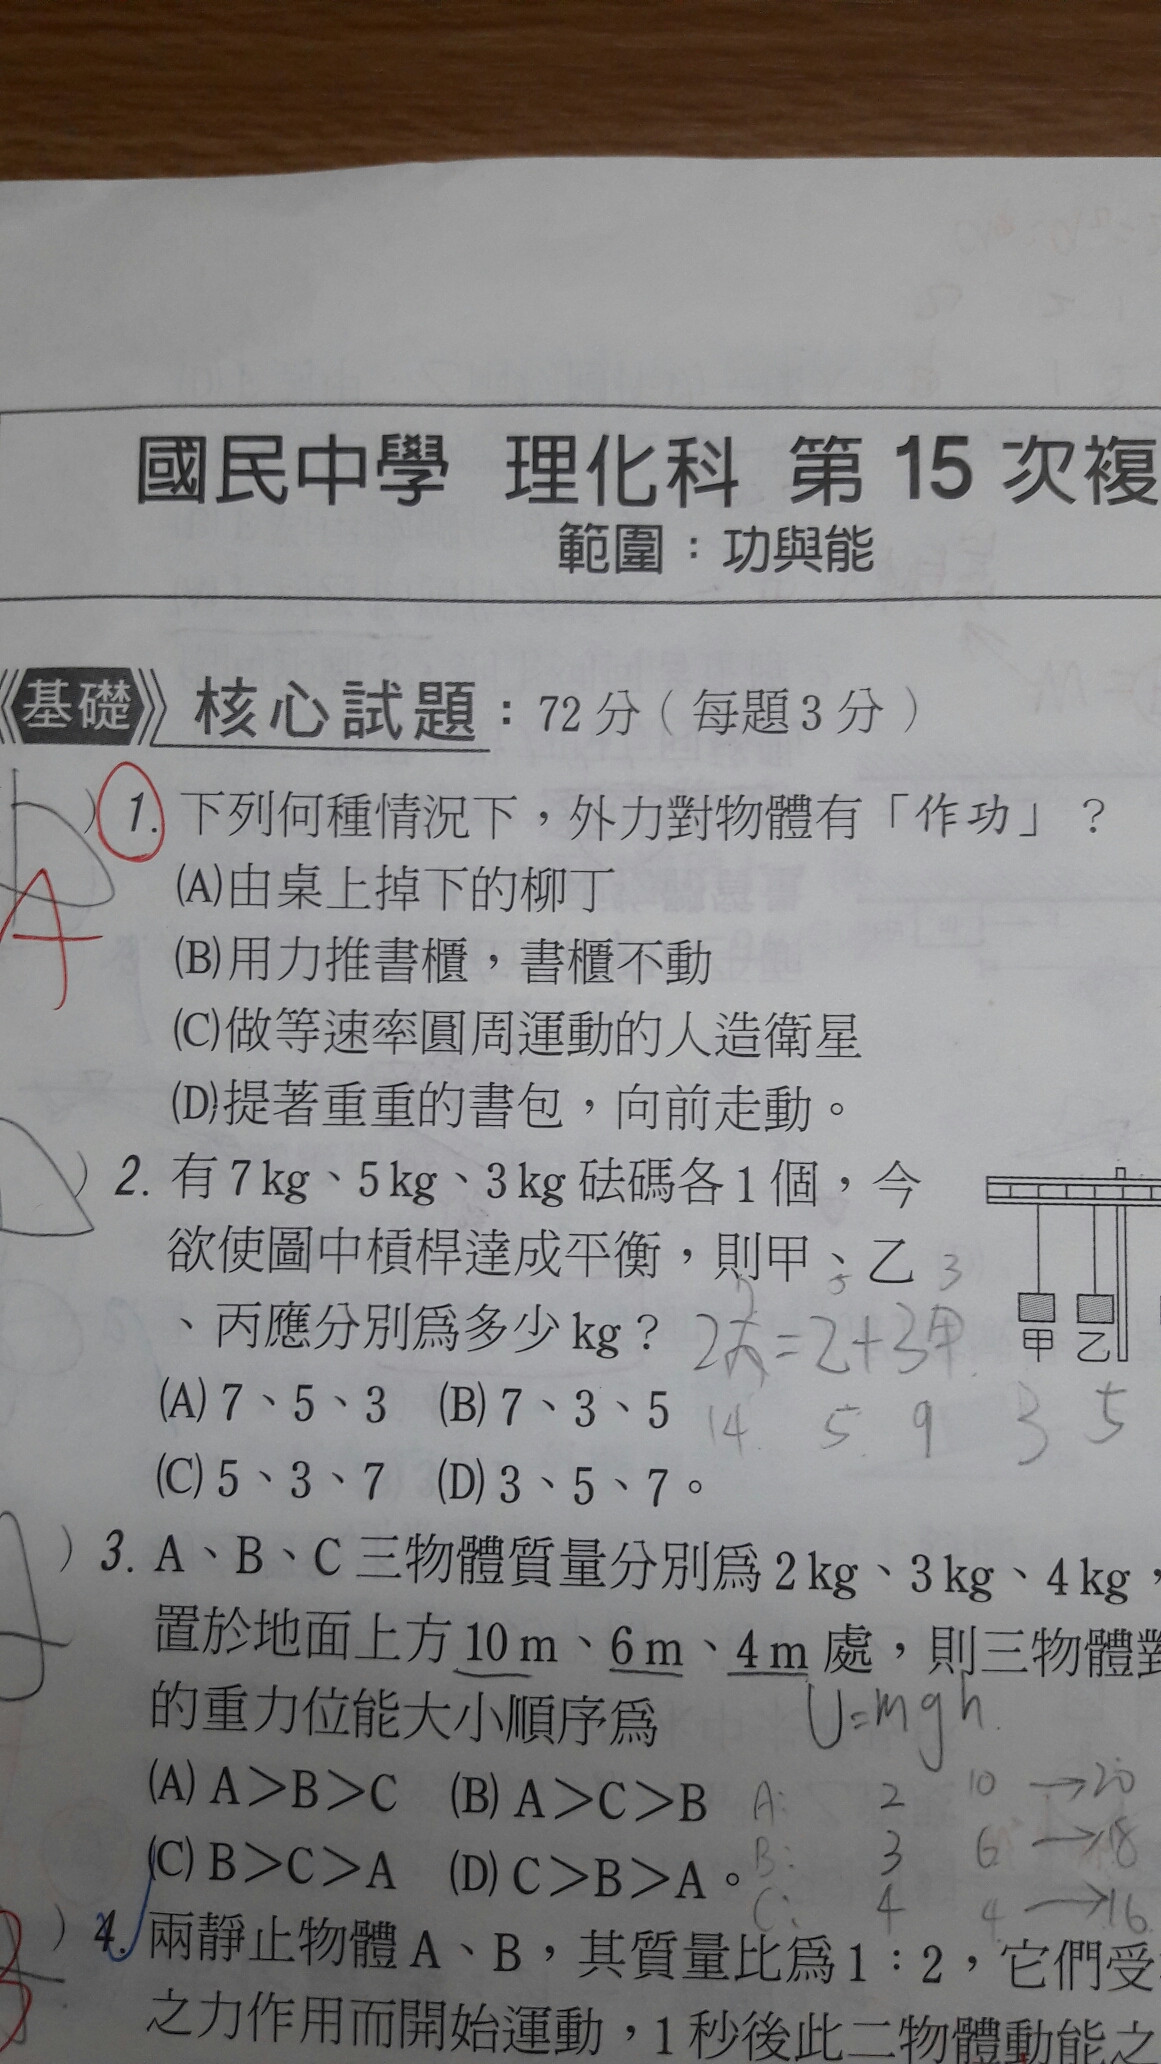 國民中學 理化科 第15次複
範圍：功與能
基礎 核心試題：72分（每題3分）
A )1. 下列何種情況下，外力對物體有「作功」？
(A)由桌上掉下的柳丁
(B)用力推書櫃，書櫃不動
(C)做等速率圓周運動的人造衛星
(D)提著重重的書包，向前走動。
)2. 有7kg、5kg、3kg砝碼各1個，今
欲使圖中槓桿達成平衡，則甲、乙
、丙應分別為多少kg？
甲 乙
(A)7、5、3 (B)7、3、5
14 5 9 3 5
(C)5、3、7 (D)3、5、7。
)3. A、B、C三物體質量分別為2kg、3kg、4kg，
置於地面上方10m、6m、4m處，則三物體對
的重力位能大小順序為 U=mgh
(A)A＞B＞C (B)A＞C＞B
A: 2 10 →20
(C)B＞C＞A (D)C＞B＞A。
B: 3 6 →18
C: 4 4 →16
)4. 兩靜止物體A、B，其質量比為1：2，它們受
之力作用而開始運動，1秒後此二物體動能之